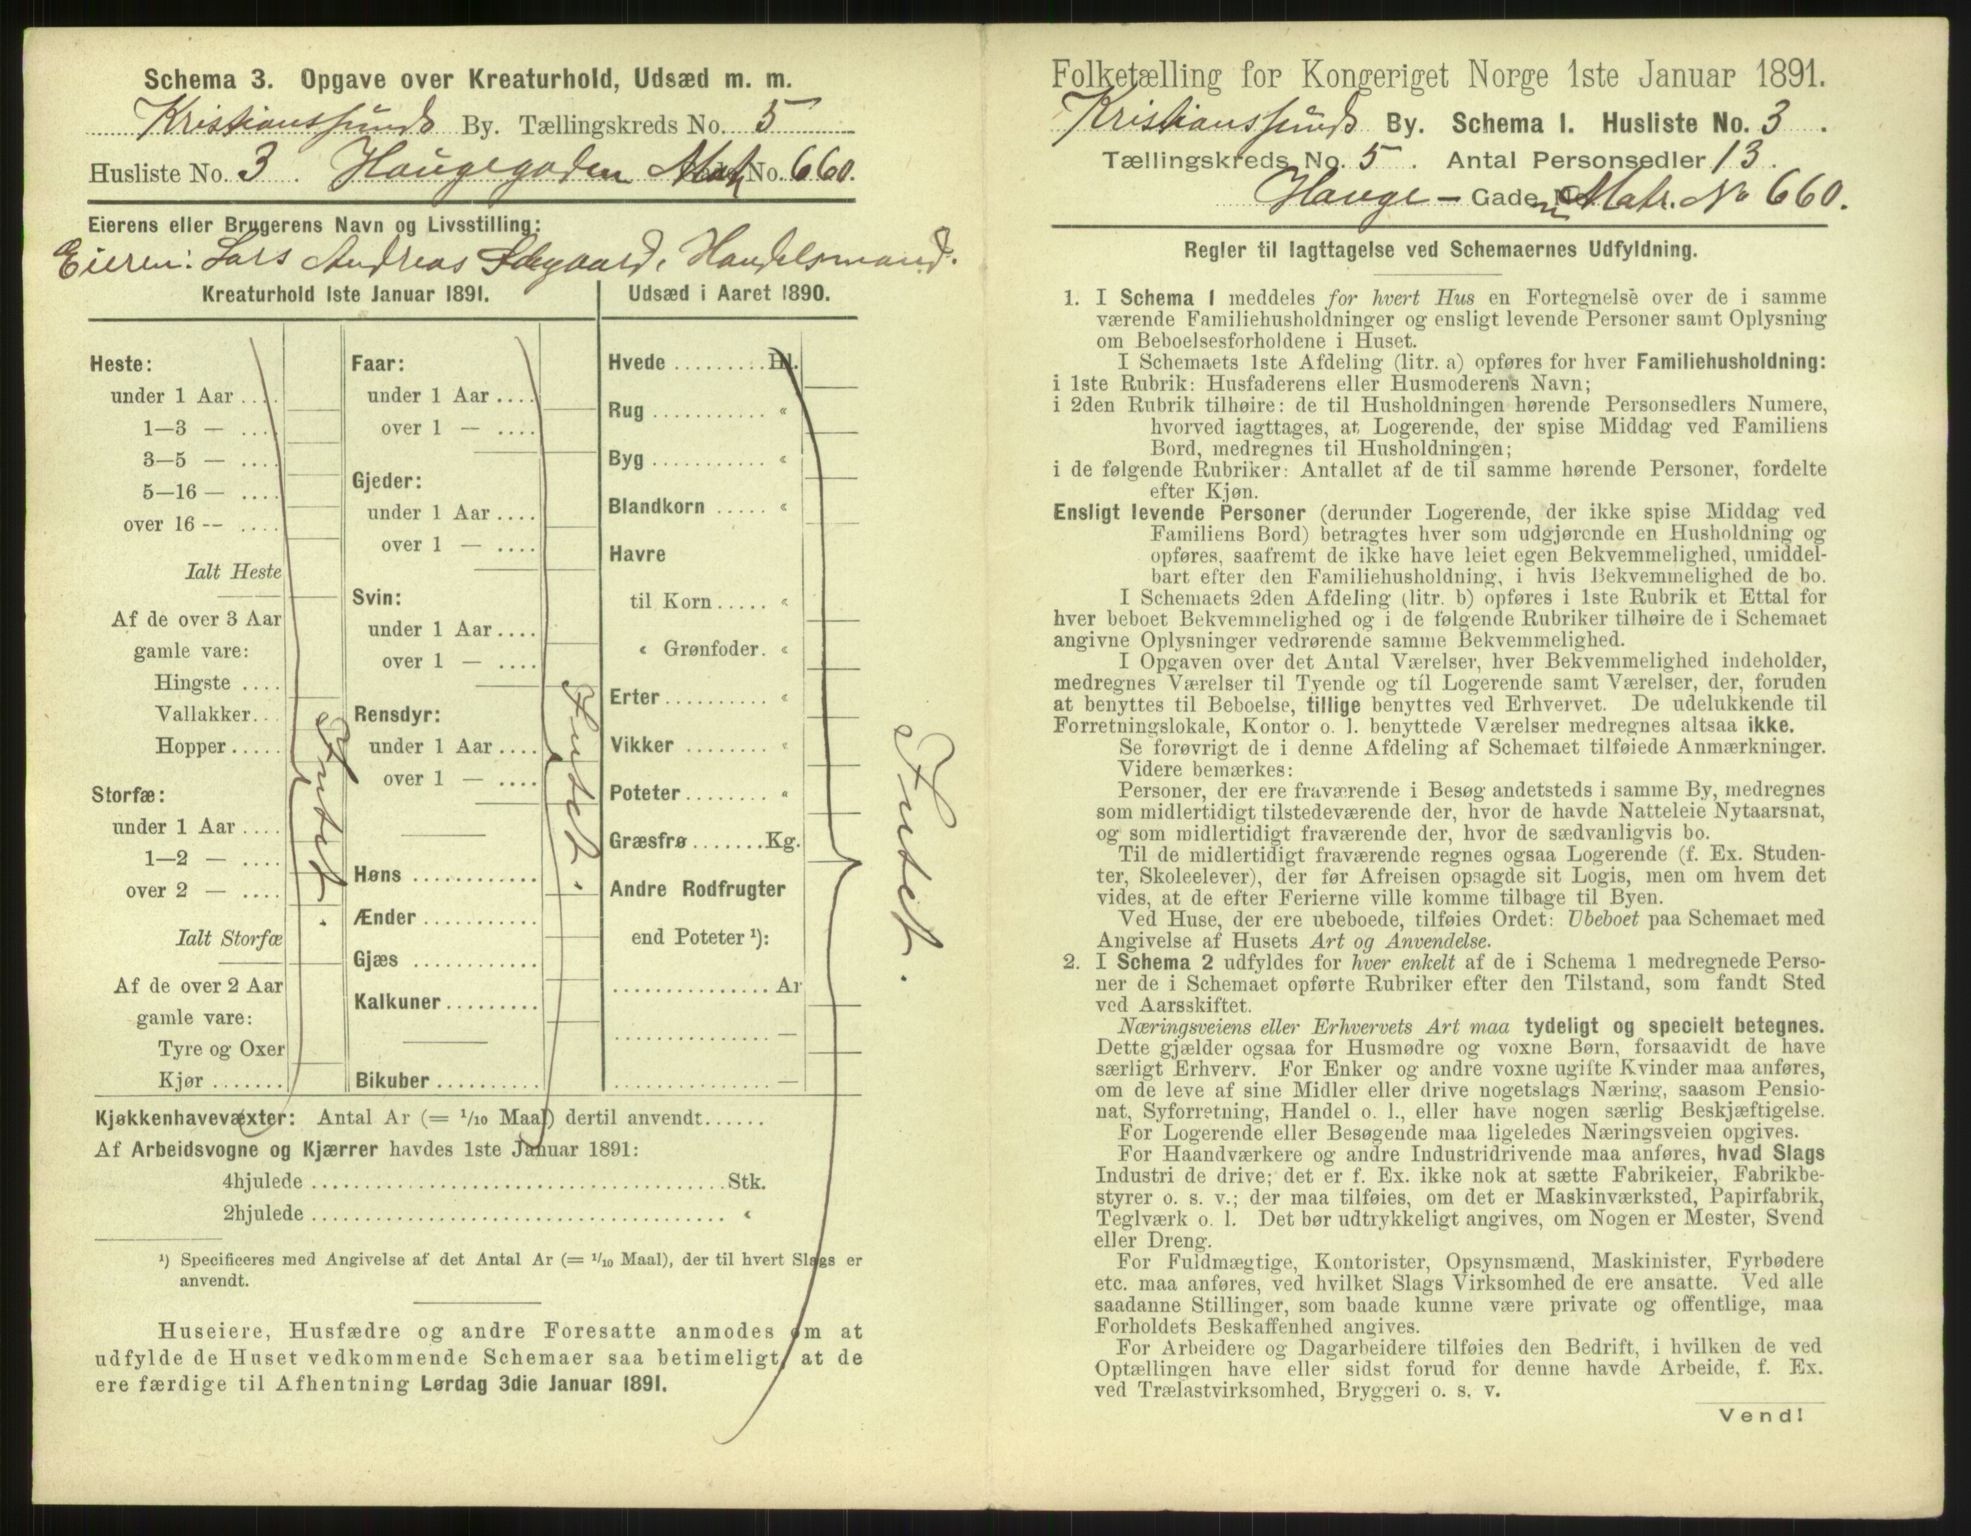 Schema 3. Opgave over Kreaturhold, Udsæd m. m.
Kristianssunds By. Tællingskreds No. 5
Husliste No. 3. Haugegaden Matr No. 660.
Eierens eller Brugerens Navn og Livsstilling:
Eieren: Lars Andreas Ødegaard, Handelsmand.
Kreaturhold 1ste Januar 1891.
Heste:
under 1 Aar ....
1—3 — ....
3—5 — ....
5—16 — ....
over 16 -- ....
Ialt Heste
Af de over 3 Aar
gamle vare:
Hingste ....
Vallakker...
Hopper .....
Storfæ:
under 1 Aar ....
1—2 — ....
over 2 — ....
Ialt Storfæ
Af de over 2 Aar
gamle vare:
Tyre og Oxer
Kjør .......
Intet.
Faar:
under 1 Aar ....
over 1 — ....
Gjeder:
under 1 Aar ....
over 1 — ....
Svin:
under 1 Aar ....
over 1 — ....
Rensdyr:
under 1 Aar ....
over 1 — ....
Høns ............
Ænder ...........
Gjæs ............
Kalkuner.........
Bikuber ..........
Intet.
Udsæd i Aaret 1890.
Hvede ......... Hl.
Rug ........... «
Byg ........... «
Blandkorn ..... «
Havre
til Korn ..... «
« Grønfoder. «
Erter ......... «
Vikker ........ «
Poteter ........ «
Græsfrø ....... Kg.
Andre Rodfrugter
end Poteter ¹):
............... Ar
............... —
............... —
Intet.
Kjøkkenhavevæxter: Antal Ar (= 1/10 Maal) dertil anvendt......
Af Arbeidsvogne og Kjærrer havdes 1ste Januar 1891:
4hjulede ........................................ Stk.
2hjulede ........................................ «
¹) Specificeres med Angivelse af det Antal Ar (= 1/10 Maal), der til hvert Slags er
anvendt.
Huseiere, Husfædre og andre Foresatte anmodes om at
udfylde de Huset vedkommende Schemaer saa betimeligt, at de
ere færdige til Afhentning Lørdag 3die Januar 1891.
Folketælling for Kongeriget Norge 1ste Januar 1891.
Kristianssunds By. Schema 1. Husliste No. 3.
Tællingskreds No. 5. Antal Personsedler 13.
Hauge - Gaden Matr. No 660.
Regler til Iagttagelse ved Schemaernes Udfyldning.
1. I Schema 1 meddeles for hvert Hus en Fortegnelse over de i samme
værende Familiehusholdninger og ensligt levende Personer samt Oplysning
om Beboelsesforholdene i Huset.
I Schemaets 1ste Afdeling (litr. a) opføres for hver Familiehusholdning:
i 1ste Rubrik: Husfaderens eller Husmoderens Navn;
i 2den Rubrik tilhøire: de til Husholdningen hørende Personsedlers Numere,
hvorved iagttages, at Logerende, der spise Middag ved Familiens
Bord, medregnes til Husholdningen;
i de følgende Rubriker: Antallet af de til samme hørende Personer, fordelte
efter Kjøn.
Ensligt levende Personer (derunder Logerende, der ikke spise Middag ved
Familiens Bord) betragtes hver som udgjørende en Husholdning og
opføres, saafremt de ikke have leiet egen Bekvemmelighed, umiddel-
bart efter den Familiehusholdning, i hvis Bekvemmelighed de bo.
I Schemaets 2den Afdeling (litr. b) opføres i 1ste Rubrik et Ettal for
hver beboet Bekvemmelighed og i de følgende Rubriker tilhøire de i Schemaet
angivne Oplysninger vedrørende samme Bekvemmelighed.
I Opgaven over det Antal Værelser, hver Bekvemmelighed indeholder,
medregnes Værelser til Tyende og til Logerende samt Værelser, der, foruden
at benyttes til Beboelse, tillige benyttes ved Erhvervet. De udelukkende til
Forretningslokale, Kontor o. l. benyttede Værelser medregnes altsaa ikke.
Se forøvrigt de i denne Afdeling af Schemaet tilføiede Anmærkninger.
Videre bemærkes:
Personer, der ere fraværende i Besøg andetsteds i samme By, medregnes
som midlertidigt tilstedeværende der, hvor de havde Natteleie Nytaarsnat,
og som midlertidigt fraværende der, hvor de sædvanligvis bo.
Til de midlertidigt fraværende regnes ogsaa Logerende (f. Ex. Studen-
ter, Skoleelever), der før Afreisen opsagde sit Logis, men om hvem det
vides, at de efter Ferierne ville komme tilbage til Byen.
Ved Huse, der ere ubeboede, tilføies Ordet: Ubeboet paa Schemaet med
Angivelse af Husets Art og Anvendelse.
2. I Schema 2 udfyldes for hver enkelt af de i Schema 1 medregnede Perso-
ner de i Schemaet opførte Rubriker efter den Tilstand, som fandt Sted
ved Aarsskiftet.
Næringsveiens eller Erhvervets Art maa tydeligt og specielt betegnes.
Dette gjælder ogsaa for Husmødre og voxne Børn, forsaavidt de have
særligt Erhverv. For Enker og andre voxne ugifte Kvinder maa anføres,
om de leve af sine Midler eller drive nogetslags Næring, saasom Pensio-
nat, Syforretning, Handel o. l., eller have nogen særlig Beskjæftigelse.
For Logerende eller Besøgende maa ligeledes Næringsveien opgives.
For Haandværkere og andre Industridrivende maa anføres, hvad Slags
Industri de drive; det er f. Ex. ikke nok at sætte Fabrikeier, Fabrikbe-
styrer o. s. v.; der maa tilføies, om det er Maskinværksted, Papirfabrik,
Teglværk o. l. Det bør udtrykkeligt angives, om Nogen er Mester, Svend
eller Dreng.
For Fuldmægtige, Kontorister, Opsynsmænd, Maskinister, Fyrbødere
etc. maa anføres, ved hvilket Slags Virksomhed de ere ansatte. Ved alle
saadanne Stillinger, som baade kunne være private og offentlige, maa
Forholdets Beskaffenhed angives.
For Arbeidere og Dagarbeidere tilføies den Bedrift, i hvilken de ved
Optællingen have eller sidst forud for denne havde Arbeide, f. Ex.
ved Trælastvirksomhed, Bryggeri o. s. v.
Vend!